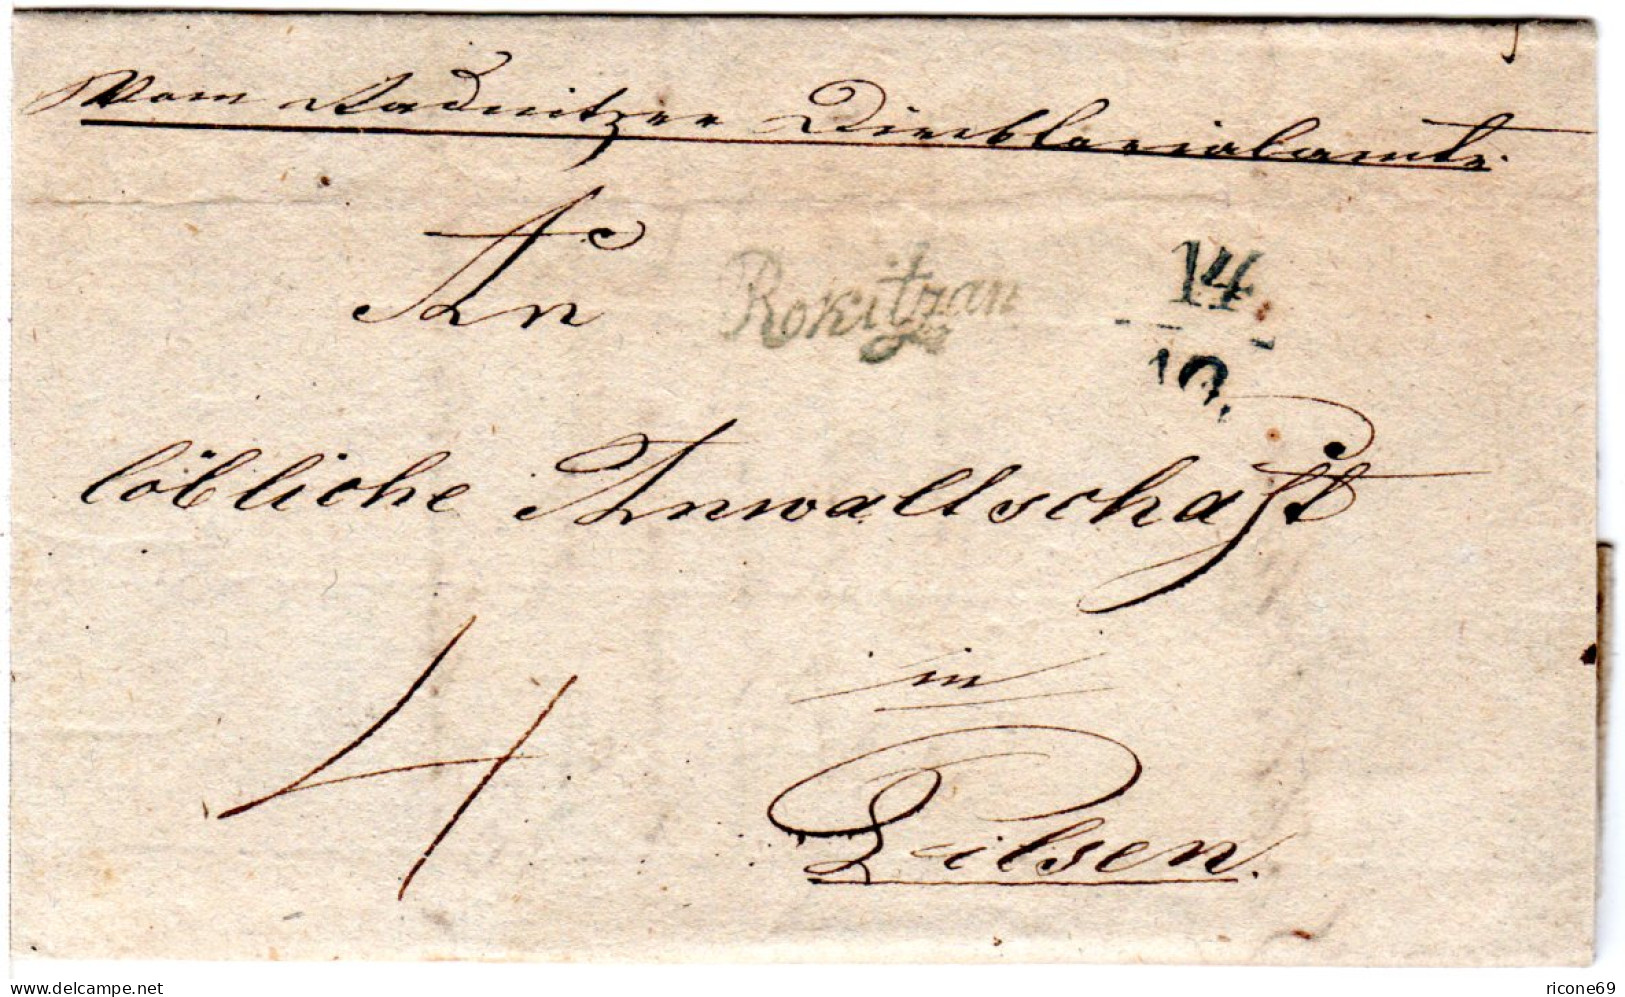 Vom Radnitzer Direktorialamte.
An
Rokitzan
14
10.
löbliche Anwallschaft
in
4
Pilsen.
delcampe.net
ricone69